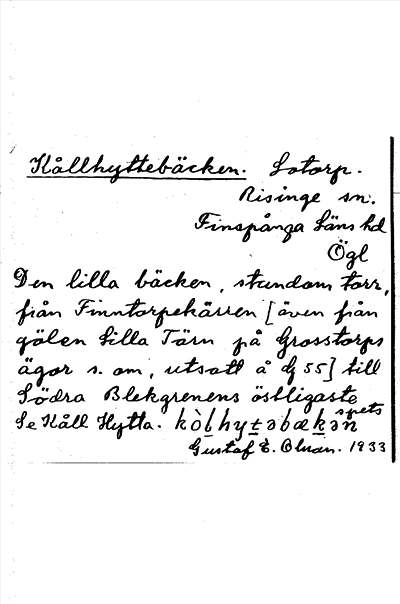 Kållhyttebäcken. Lotorp.
Risinge sn.
Finspånga Läns hd
Ögl
Den lilla bäcken, stundom torr,
från Finntorpekärren [även från
gölen Lilla Törn på Grosstorps
ägor s. om, utsatt å G 55] till
Södra Blekgrenens östligaste
spets
Se Kåll Hytta.
Gustaf E. Olsson. 1933